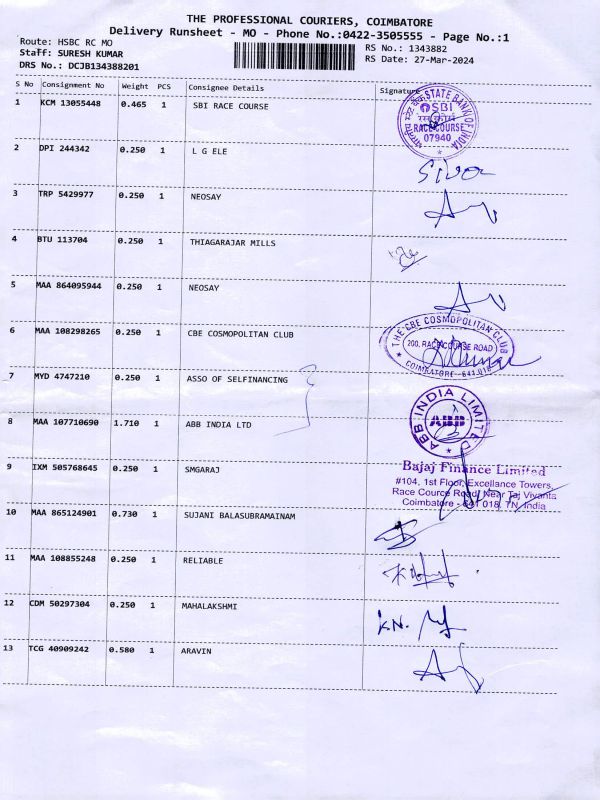 THE PROFESSIONAL COURIERS, COIMBATORE
Delivery Runsheet - MO - Phone No.:0422-3505555 - Page No.:1
Route: HSBC RC MO
Staff: SURESH KUMAR
DRS No.: DCJB134388201
RS No.: 1343882
RS Date: 27-Mar-2024
S No Consignment No Weight PCS Consignee Details Signature
1 KCM 13055448 0.465 1 SBI RACE COURSE
STATE BANK OF INDIA
SBI
RACE COURSE
07940
2 DPI 244342 0.250 1 L G ELE
3 TRP 5429977 0.250 1 NEOSAY
4 BTU 113704 0.250 1 THIAGARAJAR MILLS
5 MAA 864095944 0.250 1 NEOSAY
6 MAA 108298265 0.250 1 CBE COSMOPOLITAN CLUB
THE CBE COSMOPOLITAN CLUB
200, RACE COURSE ROAD
COIMBATORE - 641 018
7 MYD 4747210 0.250 1 ASSO OF SELFINANCING
8 MAA 107710690 1.710 1 ABB INDIA LTD
ABB INDIA LIMITED
ABB
9 IXM 505768645 0.250 1 SMGARAJ
Bajaj Finance Limited
#104, 1st Floor, Excellance Towers,
Race Cource Road, Near Taj Vivanta
Coimbatore - 641 018, TN, India
10 MAA 865124901 0.730 1 SUJANI BALASUBRAMAINAM
11 MAA 108855248 0.250 1 RELIABLE
12 CDM 50297304 0.250 1 MAHALAKSHMI
KN.
13 TCG 40909242 0.580 1 ARAVIN